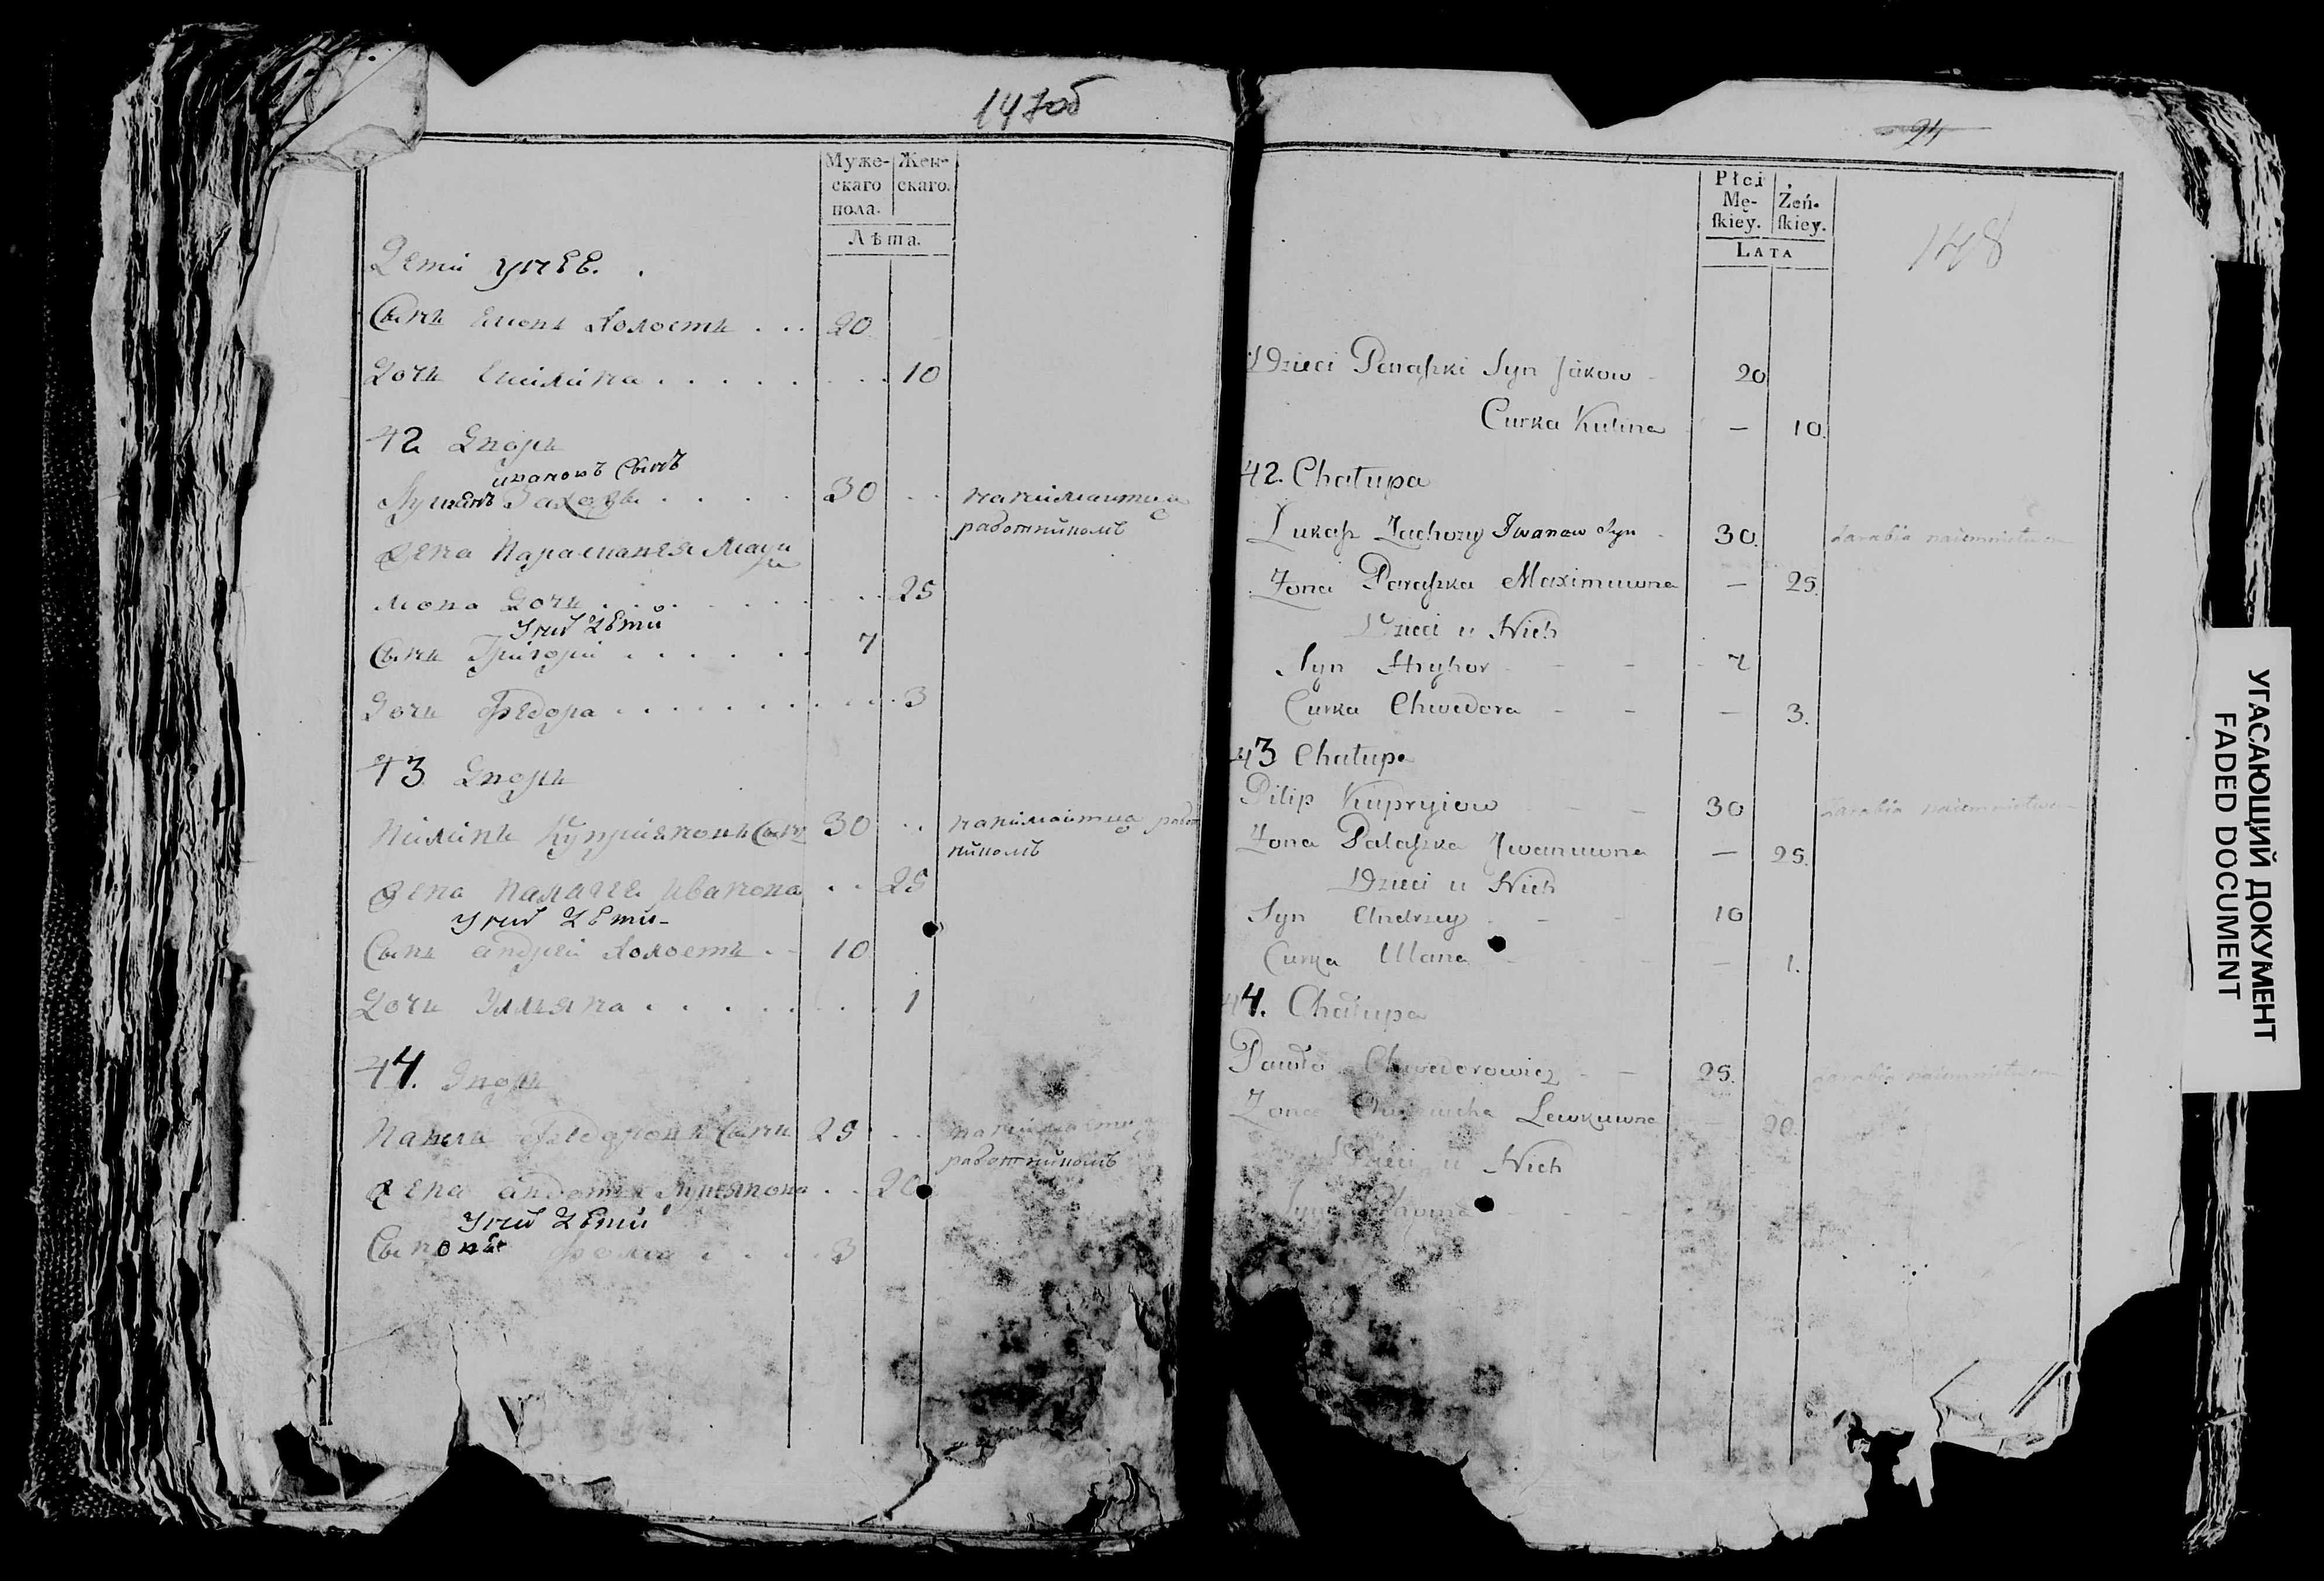 147об
Муже- Жен-
скаго скаго.
пола.
Лѣта.
Дети унее.
Сынъ холостъ 20
Дочь 10
42 Дворъ
ивановъ Сынъ
30 нанимаитца
работникомъ
Жена Парасманея Макси
мова Дочь 25
Униѵ дети
Сынъ Григорий 7
Дочь Федора 3
43 Дворъ
Пилипъ Куприяновъ Сынъ 30 нанимаитца работ
никомъ
Жена Палагея Иванова 25
Униѵ дети
Сынъ андрей холостъ 10
Дочь Улляна 1
44. Дворъ
Павелъ Федоровъ Сынъ 25
работникомъ
Жена
Униѵ дети
Фома 3
24
148
Płci
Mę- Żeń-
ſkiey. ſkiey.
LATA
Dzieci Paraſzki Syn Jakow 20
Curka Kulina — 10.
42. Chałupa
Łukaſz Zachozy Iwanow Syn 30. zarabia naiemnictwem
Zona Paraſzka Maximuwna — 25.
Dzieci u Nich
Syn Hryhor 7
Curka Chwedora — 3.
43 Chałupa
Pilip Kupryiow 30 zarabia naiemnictwem
Zona Pałaſzka Iwanuwna — 25.
Dzieci u Nich
Syn Andrzey 10
Curka Ulana — 1.
44. Chałupa
Pawło Chwederowicz 25. zarabia naiemnictwem
Zona Lewkuwna 20.
Dzieci u Nich
Syn
УГАСАЮЩИЙ ДОКУМЕНТ
FADED DOCUMENT